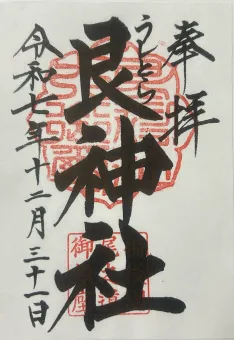 奉拝
うしとら
艮神社
令和七年十二月三十一日